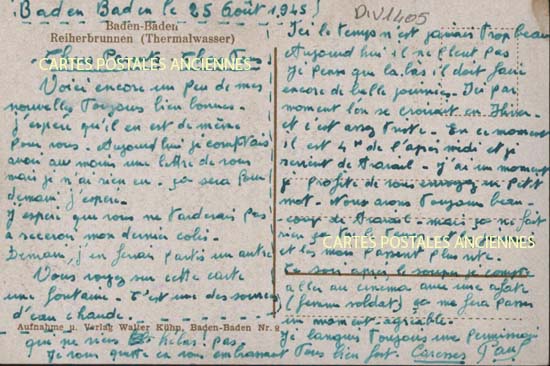 Baden Baden le 25 Août 1945
DIV1405
Baden-Baden
Reiherbrunnen (Thermalwasser)
CARTES POSTALES ANCIENNES
Voici encore un peu de mes
nouvelles toujours bien bonnes.
J'espère qu'il en est de même
pour vous. Aujourd'hui je comptais
avoir au moins une lettre de vous
mais je n'ai rien eu. ça sera pour
demain j'espère.
J'espère que vous ne tarderais pas
à recevoir mon dernier colis.
Demain, j'en ferais partir un autre
Vous voyez sur cette carte
une fontaine. C'est une des sources
d'eau chaude.
Aufnahme u. Verlag Walter Kühn, Baden-Baden Nr. 9
hélas! pas
Je vous quitte en vous embrassant
Ici le temps n'est jamais trop beau
Aujourd'hui il ne pleut pas
Je pense que là-bas il doit faire
encore de belle journées. Ici par
moment l'on se croirait en Hiver
et c'est assez triste. En ce moment
il est 4h de l'après midi et je
revient de travail. J'ai un moment
je profite de vous envoyer un petit
mot. Nous avons toujours beau-
coup de travail mais ça ne fait
rien
et les mois passent plus vite.
CARTES POSTALES ANCIENNES
Ce soir après le souper je compte
aller au cinéma avec une
(femme soldat) ça me fera passer
un moment agréable.
Je languis toujours une permission
tous bien fort. Caresses